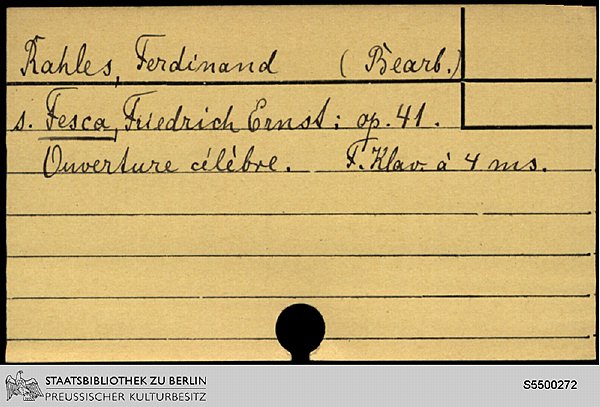 Rahles, Ferdinand (Bearb.)
s. Fesca, Friedrich Ernst: op. 41.
Ouverture célèbre. F. Klav. à 4 ms.
STAATSBIBLIOTHEK ZU BERLIN
PREUSSISCHER KULTURBESITZ
S5500272